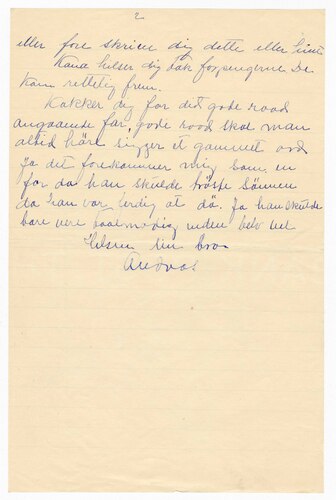 2
eller fore skriver dig dette eller hint
hans helser dig tak for pengerne De
kam rettelig frem.
Takker dig for det gode raad
angaaende far, gode raad skal man
altid høre sigger et gammelt ord
Ja det forekommer mig som en
far da han skulde trøste sønnen
da han var ferdig at dø. Ja han skulde
bare vere taalmodig
Hilsen din bro